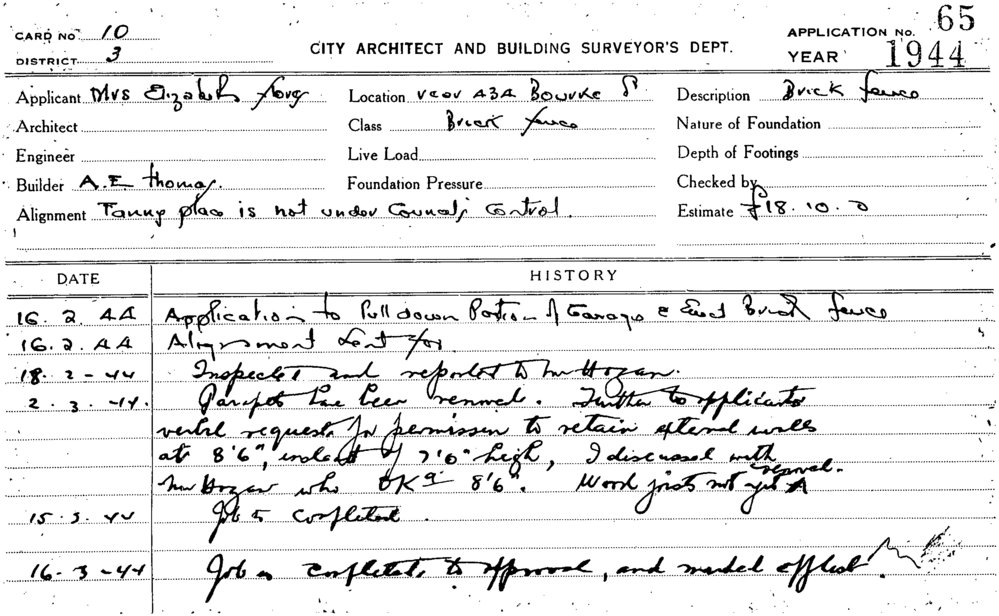 CARD NO 10
DISTRICT 3
CITY ARCHITECT AND BUILDING SURVEYOR'S DEPT.
APPLICATION No. 65
YEAR 1944
Applicant Mrs Elizabeth
Location rear 434 Bourke St
Description Brick fence
Architect
Class Brick fence
Nature of Foundation
Engineer
Live Load
Depth of Footings
Builder A.E Thomas.
Foundation Pressure
Checked by
Alignment Fanny place is not under Councils Control.
Estimate £18.10.0
DATE
HISTORY
16. 2. 44 Application to Pull down Portion of Garage & Erect Brick fence
16. 2. 44 Alignment sent for
18. 2 - 44 Inspected and reported to Mr Hogan.
2. 3. -44. Parapet has been removed. Further to applicants
verbal request for permission to retain external walls
at 8'6", instead of 7'0" high, I discussed with
Mr Hogan who OKed 8'6". Wood joists not yet removed.
15. 3. 44 Job is completed.
16- 3 -44 Job is completed, to approval, and marked off list.